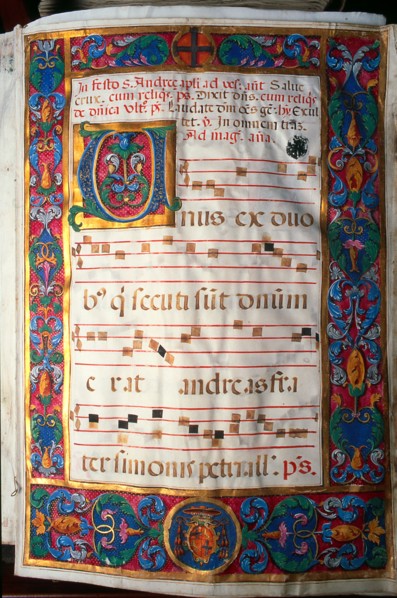 In festo S. Andreę apłi ad ves. añt Salue
crux. cum reliqs. ps. Dixit dñs. cum reliqs
de dñica vltº. pº. Laudate dñm oẽs gẽ: hy Exul
tet. ỹ. In omnem trãs.
Ad mag. aña.
Unus ex duo
bꝰ q̃ secuti sũt dñum
e rat andreas fra
ter simonis petri all'. ps.